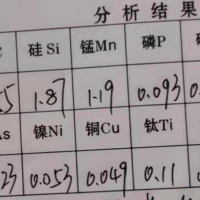 分析结果
硅Si 锰Mn 磷P
1.87 1.19 0.093
As 镍Ni 铜Cu 钛Ti
23 0.053 0.049 0.11